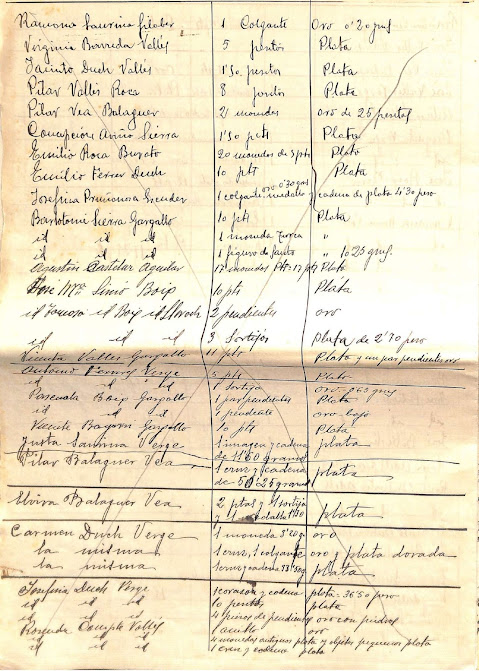 Ramona Saurina Gilaber 1 Colgante oro 0'20 grs
Virginia Barreda Vallés 5 pesetas Plata
Jacinto Duch Vallés 1'50 pesetas Plata
Pilar Vallés Roca 8 pesetas Plata
Pilar Vea Balaguer 2 monedas oro de 25 pesetas
Concepcion Aviño Sierra 1'50 pts Plata
Emilio Roca 20 monedas de 5 pts Plata
Emilio Ferrer Duch 10 pts Plata
Josefina Pruñonosa Escuder 1 colgante oro 0'30 grs medalla y cadena de plata 4'30 peso
Bartolomé Sierra Gargallo 10 pts Plata
id id id 1 moneda Turca "
id id id 1 figura de santo " 10 25 grs.
Agustin Castelar Aguilar 17 monedas Pts = 17 pts Plata
José Mª Simó Boix 10 pts Plata
id id Boix id 2 pendientes oro
id id id 3 Sortijas Plata de 2'70 peso
Vicenta Vallés Gargallo 11 pts Plata y un par pendientes oro
Antonio Verge 5 pts Plata
id id id 1 Sortija oro
Pascuala Boix Gargallo 1 par pendientes Plata
id id id 1 pendiente oro bajo
Vicente Gargallo 10 pts Plata
Justa Saurina Verge 1 imagen y cadena de 11'60 gramos plata
Pilar Balaguer Vea 1 cruz y cadena de 5'25 gramos plata
Elvira Balaguer Vea 2 ptas y 1 sortija y 1 medalla plata
Carmen Duch Verge 1 moneda 3'20 g. oro
la misma 1 cruz, 1 colgante oro y plata dorada
la misma 1 cruz y cadena plata
Josefina Duch Verge 1 corazon y cadena plata = 36'50 peso
id id id 10 pesetas plata
id id id 4 de pendientes oro con piedras
Rosenda Vallés oro
id id id 4 monedas antiguas plata y objetos pequeños plata
1 cruz y cadena plata